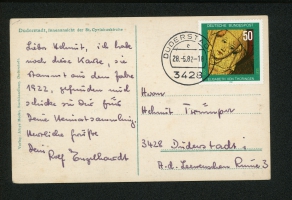 Duderstadt, Innenansicht der St. Cyriakuskirche
Lieber Helmut, ich habe
noch diese Karte, sie
stammt aus dem Jahre
1922, gefunden und
schicke sie Dir für
Deine Heimatsammlung.
Herzliche Grüße
Dein Rolf Engelhardt
DUDERSTADT
28.-5.82-
3428
DEUTSCHE BUNDESPOST
50
ELISABETH VON THÜRINGEN
Herrn
Helmut Trümper
3428 Duderstadt 1
A.d. Rinne 3